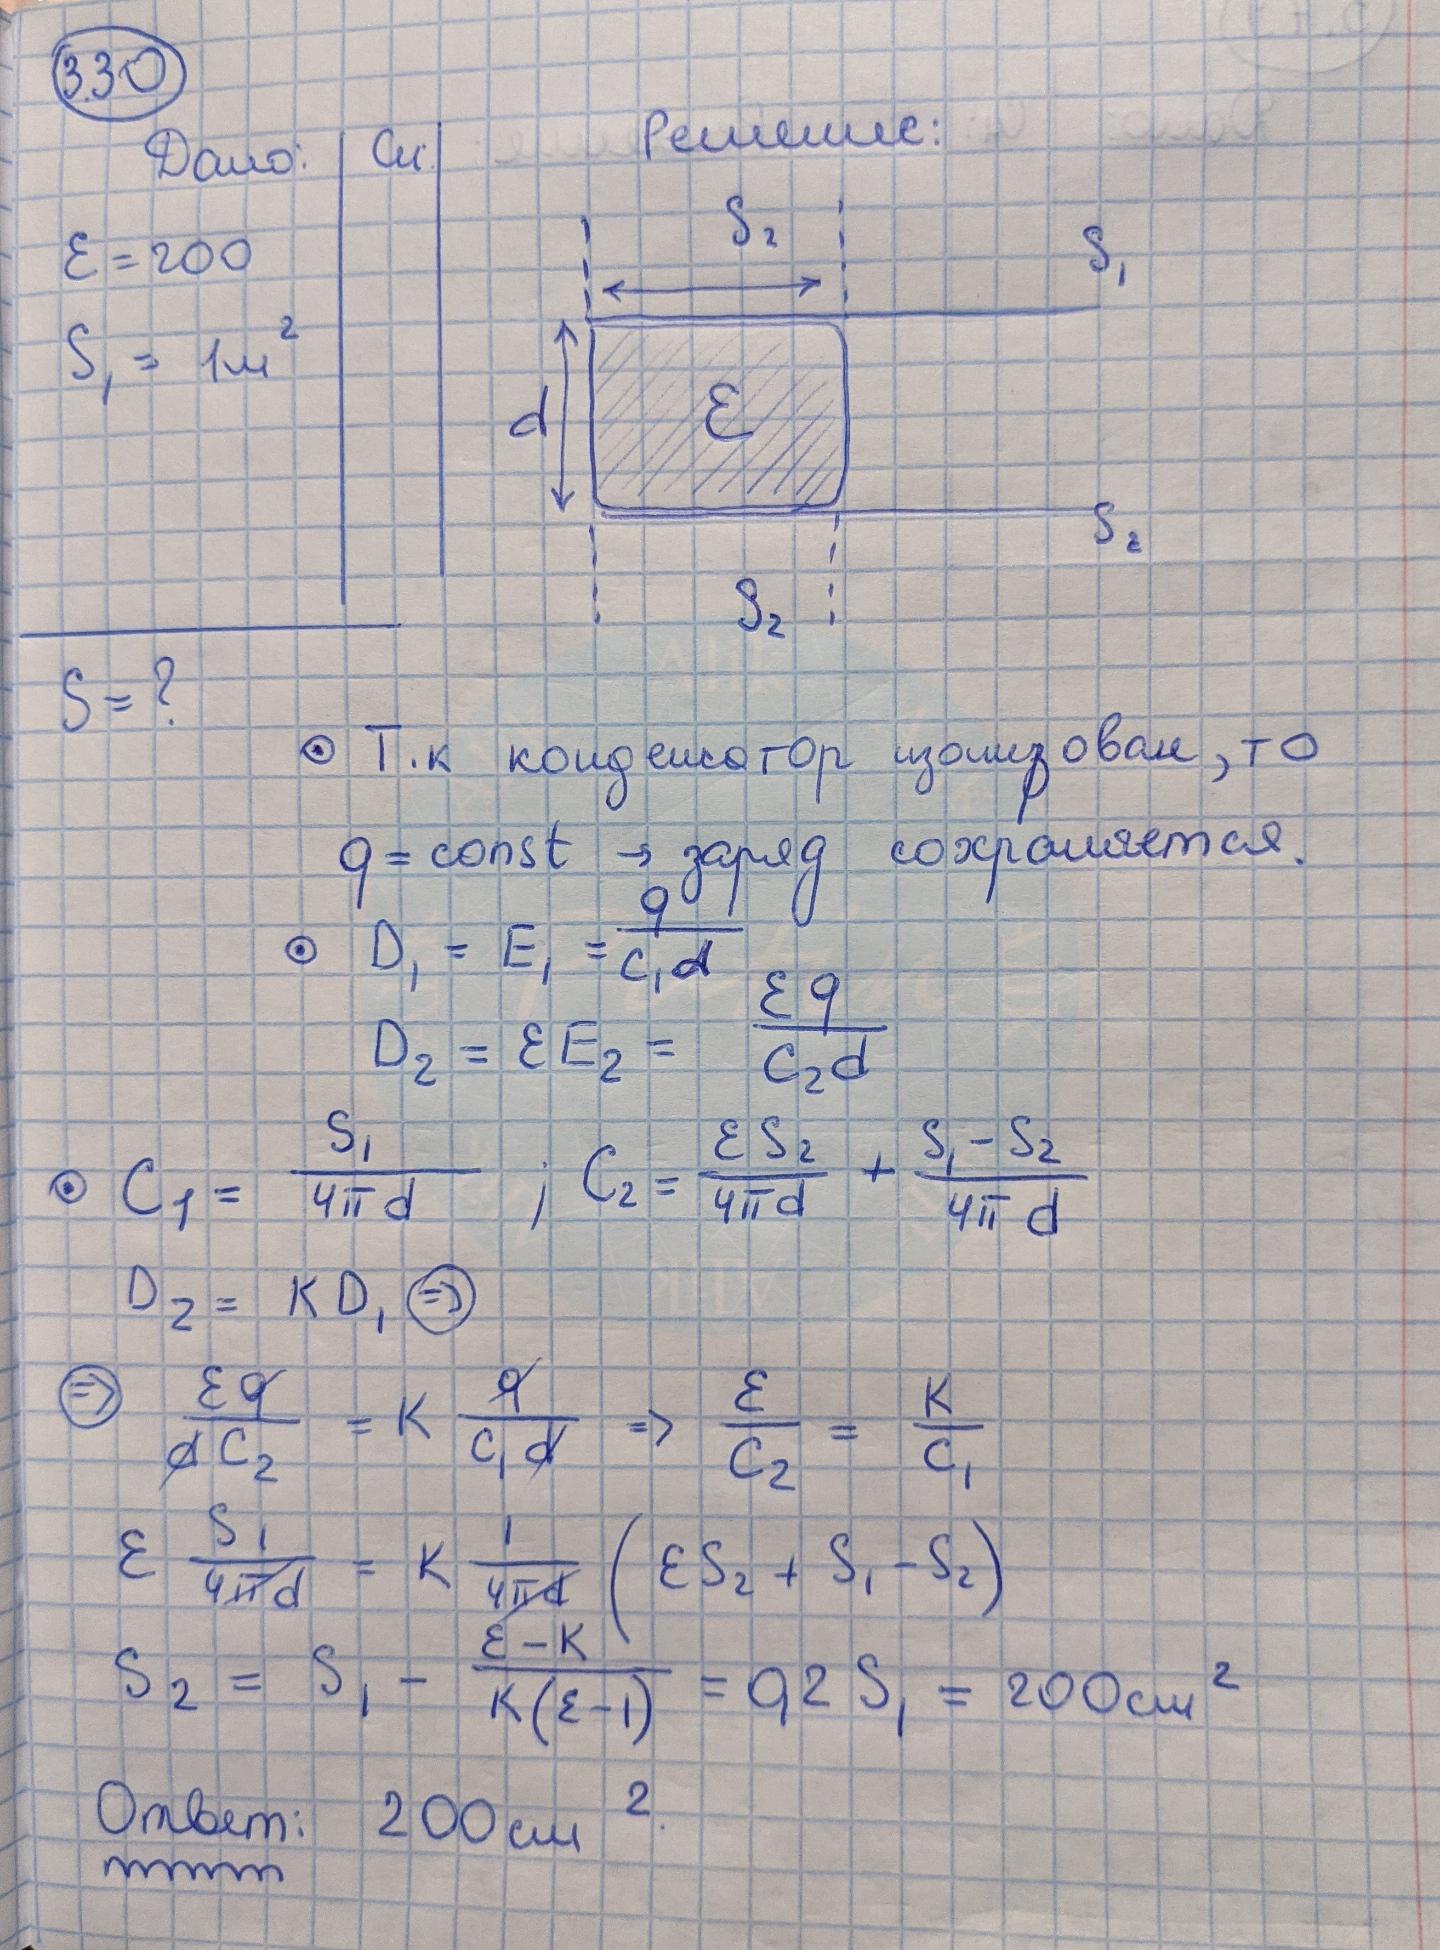 3.30
Дано: Си. Решение:
ε = 200
S₁ = 1м²
S₂
S₁
d
ε
S₂
S₂
S = ?
⊙ Т.к конденсатор изолирован, то
q = const → заряд сохраняется.
⊙ D₁ = E₁ = q/(C₁d)
D₂ = εE₂ = εq/(C₂d)
⊙ C₁ = S₁/(4πd) ; C₂ = εS₂/(4πd) + (S₁ - S₂)/(4πd)
D₂ = KD₁ ⇒
⇒ εq/(dC₂) = K q/(C₁d) => ε/C₂ = K/C₁
ε S₁/(4πd) = K 1/(4πd) (εS₂ + S₁ - S₂)
S₂ = S₁ - (ε-K)/(K(ε-1)) = 0,2 S₁ = 200см²
Ответ: 200см².